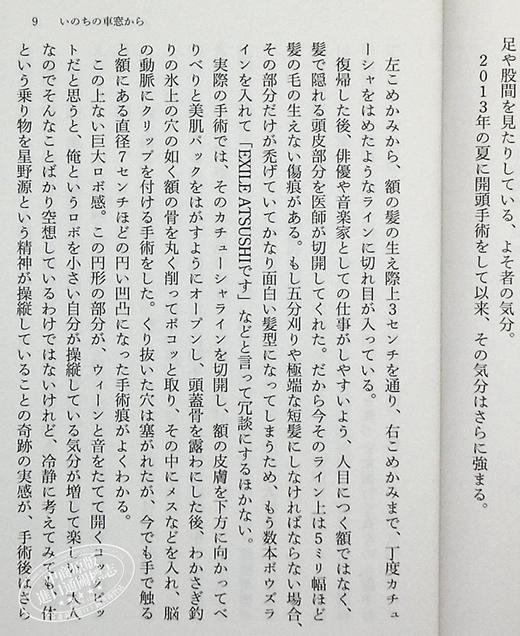 9　いのちの車窓から
足や股間を見たりしている、よそ者の気分。
2013年の夏に開頭手術をして以来、その気分はさらに強まる。
左こめかみから、額の髪の生え際上3センチを通り、右こめかみまで、丁度カチュ
ーシャをはめたようなラインに切れ目が入っている。
復帰した後、俳優や音楽家としての仕事がしやすいよう、人目につく額ではなく、
髪で隠れる頭皮部分を医師が切開してくれた。だから今そのライン上は5ミリ幅ほど
髪の毛の生えない傷痕がある。もし五分刈りや極端な短髪にしなければならない場合、
その部分だけが禿げていてかなり面白い髪型になってしまうため、もう数本ボウズラ
インを入れて「EXILE ATSUSHIです」などと言って冗談にするほかない。
実際の手術では、そのカチューシャラインを切開し、額の皮膚を下方に向かってべ
りべりと美肌パックをはがすようにオープンし、頭蓋骨を露わにした後、わかさぎ釣
りの氷上の穴の如く額の骨を丸く削ってボコッと取り、その中にメスなどを入れ、脳
の動脈にクリップを付ける手術をした。くり抜いた穴は塞がれたが、今でも手で触る
と額にある直径7センチほどの円い凹凸になった手術痕がよくわかる。
この上ない巨大ロボ感。この円形の部分が、ウィーンと音をたてて開くコックピッ
トだと思うと、俺というロボを小さい自分が操縦している気分が増して楽しい。大人
なのでそんなことばかり空想しているわけではないけれど、冷静に考えてみても、体
という乗り物を星野源という精神が操縦していることの奇跡の実感が、手術後はさら